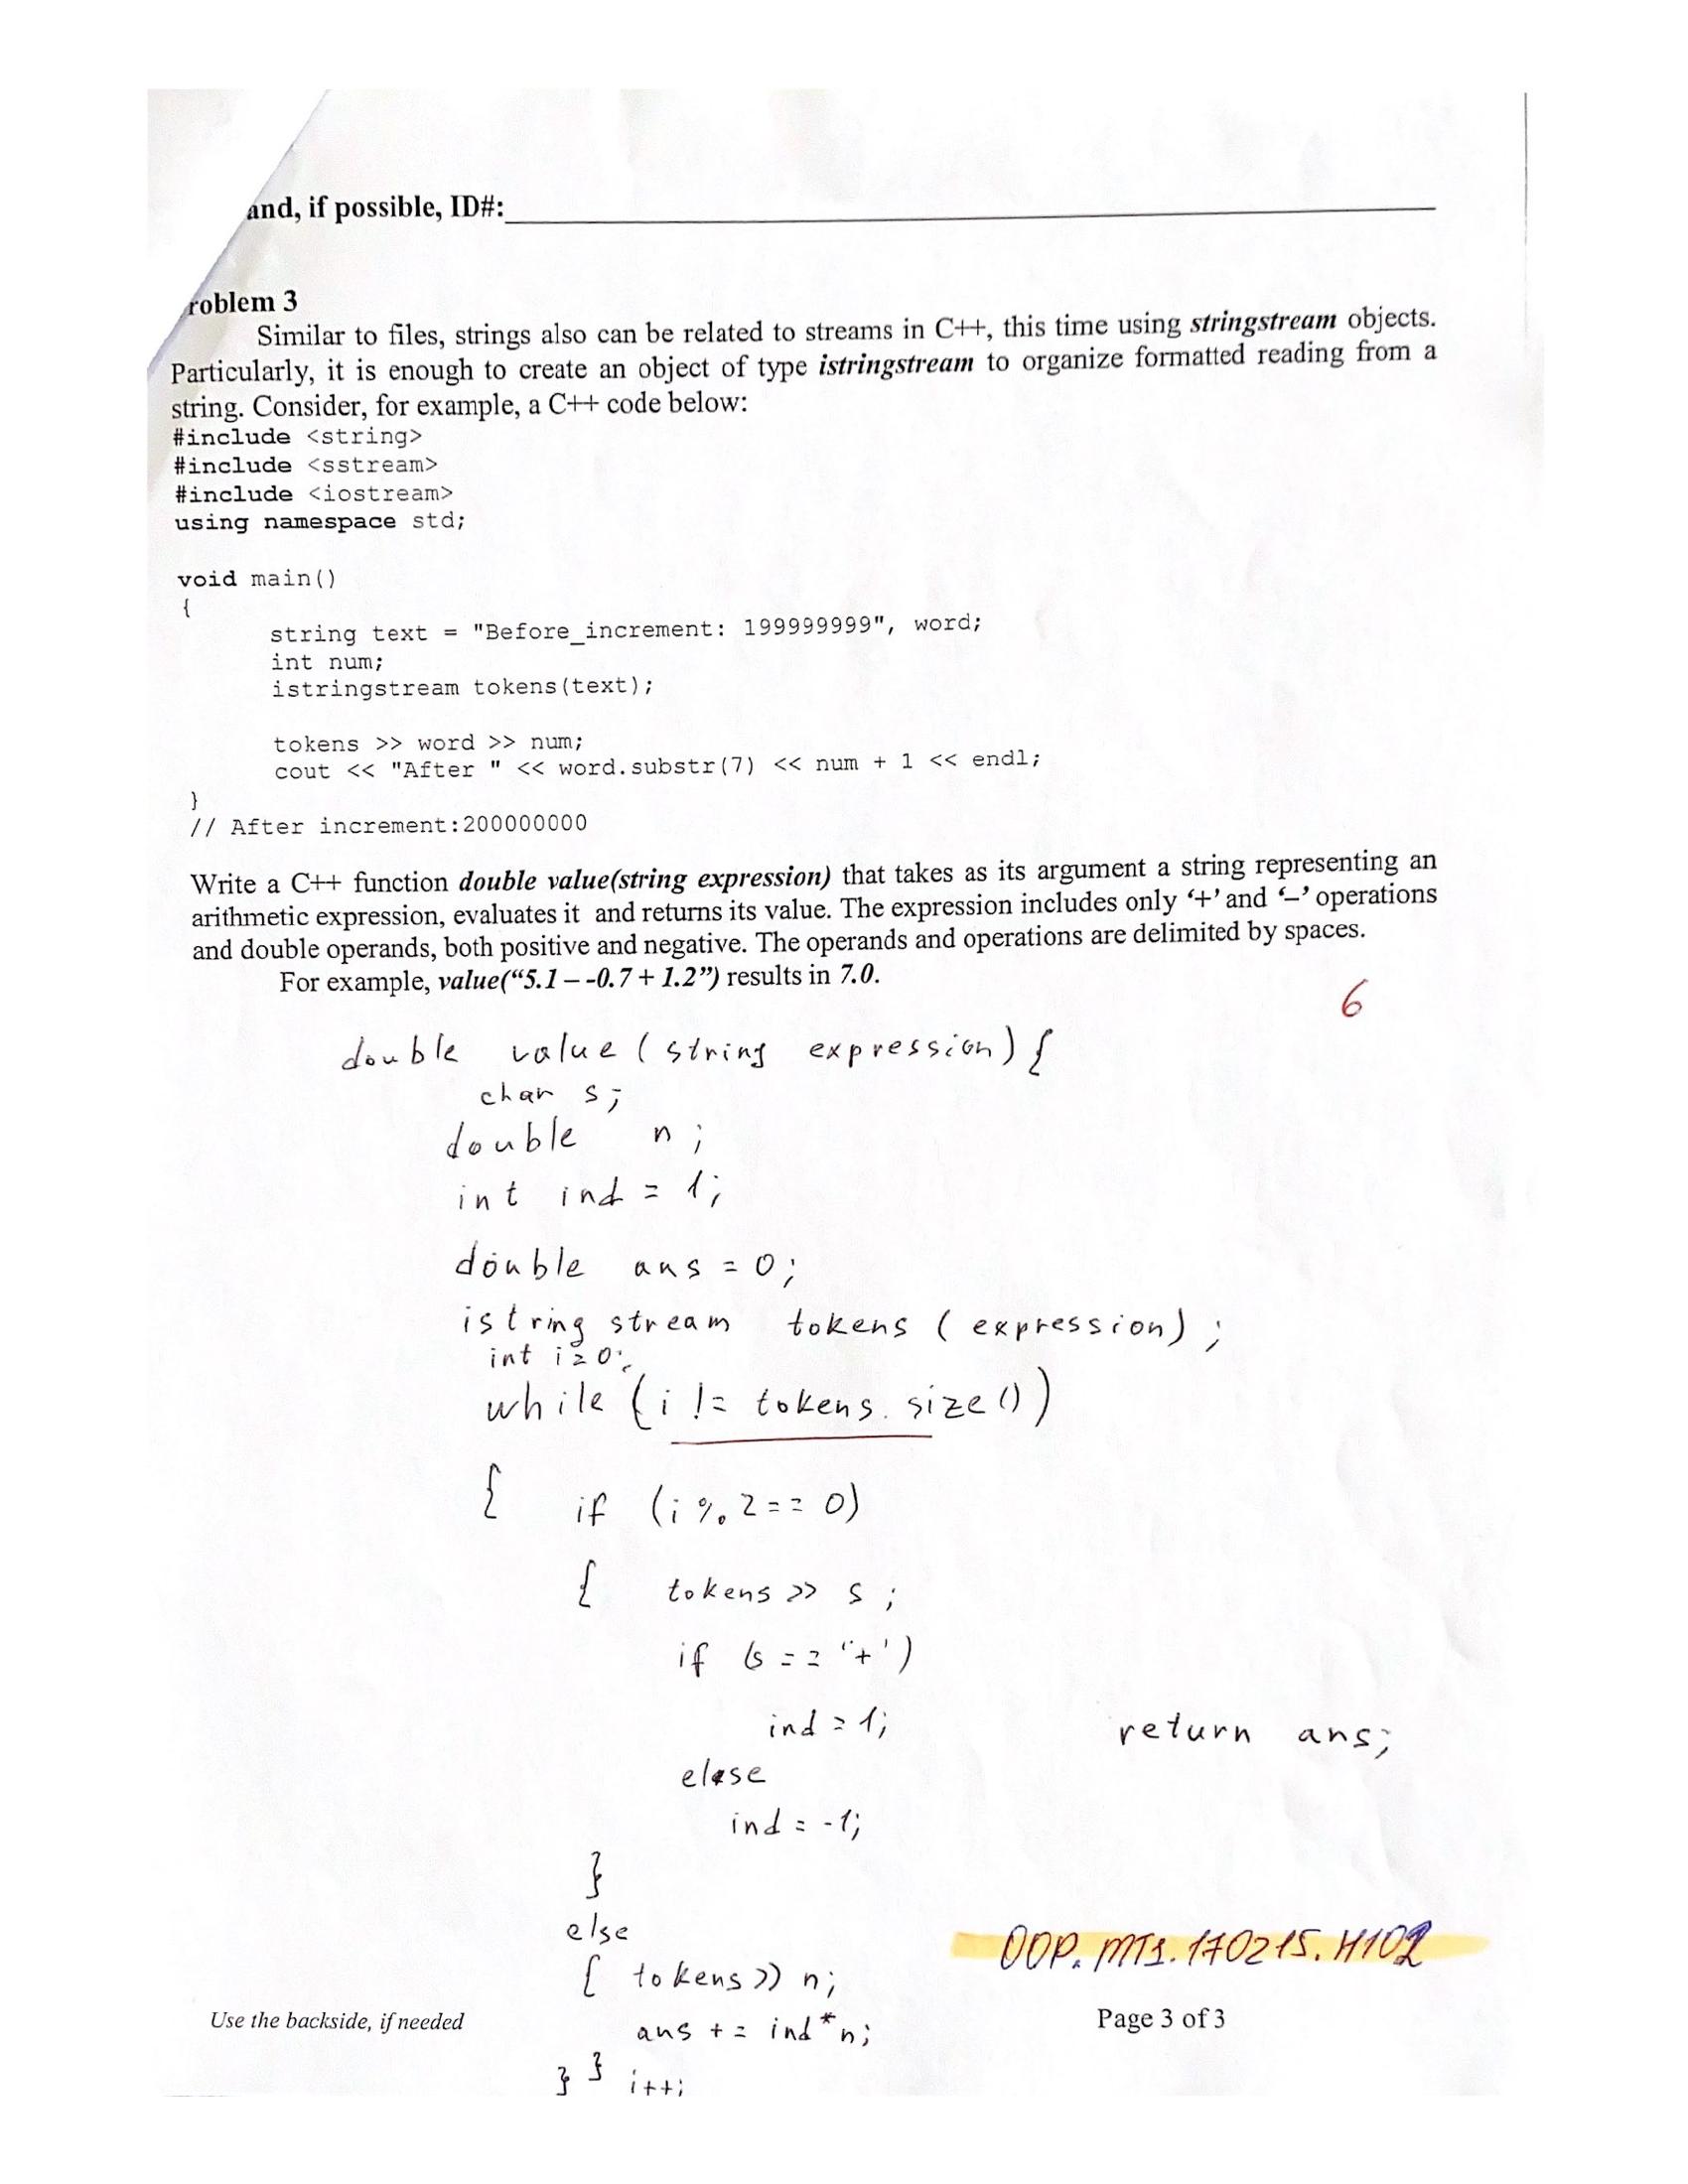 and, if possible, ID#:
roblem 3
Similar to files, strings also can be related to streams in C++, this time using stringstream objects.
Particularly, it is enough to create an object of type istringstream to organize formatted reading from a
string. Consider, for example, a C++ code below:
#include <string>
#include <sstream>
#include <iostream>
using namespace std;
void main()
{
string text = "Before_increment: 199999999", word;
int num;
istringstream tokens(text);
tokens >> word >> num;
cout << "After " << word.substr(7) << num + 1 << endl;
}
// After increment:200000000
Write a C++ function double value(string expression) that takes as its argument a string representing an
arithmetic expression, evaluates it and returns its value. The expression includes only ‘+’ and ‘–’ operations
and double operands, both positive and negative. The operands and operations are delimited by spaces.
For example, value(“5.1 – -0.7 + 1.2”) results in 7.0.
6
double value ( string expression) {
char s;
double n;
int ind = 1;
double ans = 0;
istringstream tokens ( expression) ;
int i=0;
while (i != tokens.size())
{ if (i % 2 == 0)
{ tokens >> s ;
if (s == '+')
ind = 1;
return ans;
else
ind = -1;
}
else
{ tokens >> n;
ans += ind*n;
} } i++;
OOP.MT1.170215.H102
Use the backside, if needed
Page 3 of 3